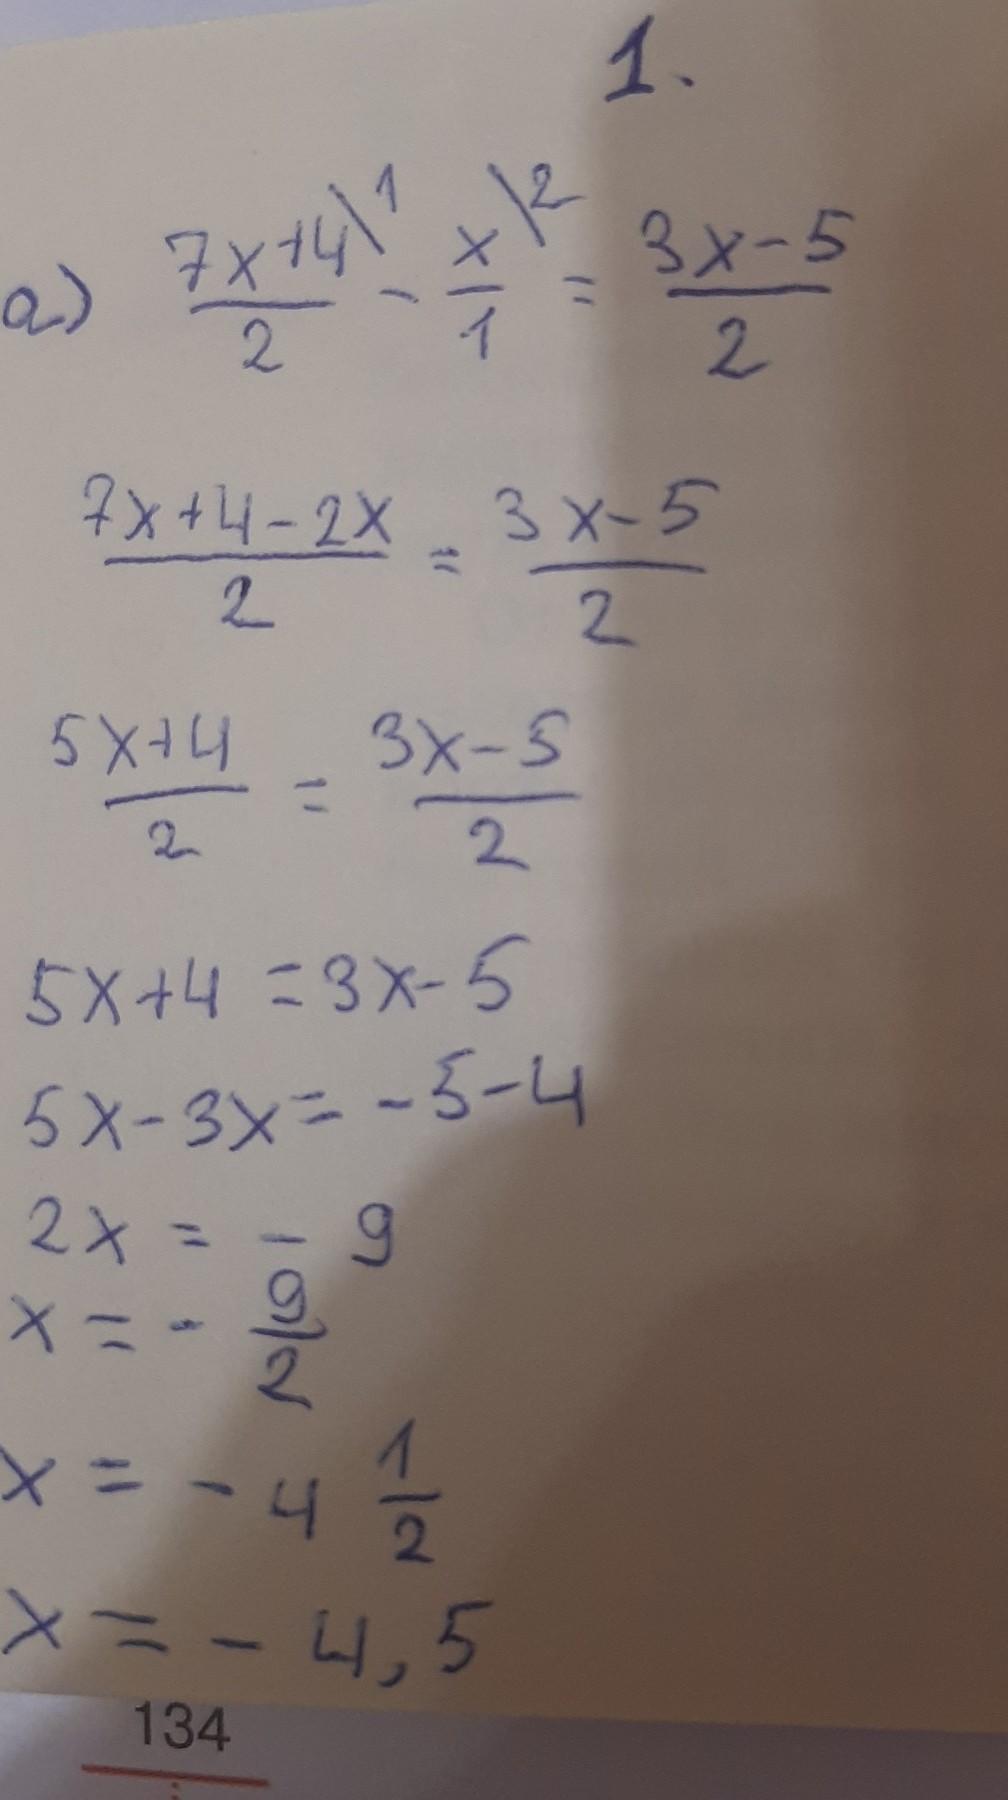 1.
a) \frac{7x+4\1}{2} - \frac{x\2}{1} = \frac{3x-5}{2}
\frac{7x+4-2x}{2} = \frac{3x-5}{2}
\frac{5x+4}{2} = \frac{3x-5}{2}
5x+4 = 3x-5
5x-3x = -5-4
2x = - 9
x = - \frac{9}{2}
x = - 4 \frac{1}{2}
x = - 4,5
134